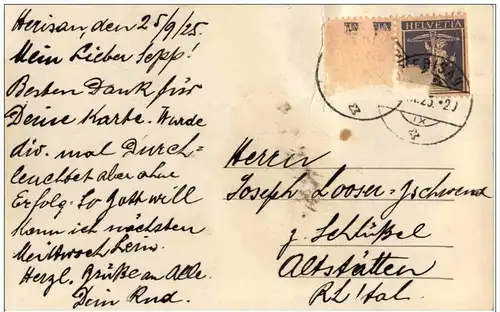 Herisau, den 25/9/25.
Mein Lieber Sepp!
Besten Dank für
Deine Karte. Wurde
div. mal Durch=
leuchtet aber ohne
Erfolg. So Gott will
kann ich nächsten
Mittwoch heim.
Herzl. Grüße an Alle.
Dein Rud.
HELVETIA
HERISAU
IX
Herrn
Joseph Looser=Zschwend
z. Schlüßel
Altstätten
Rh'tal.